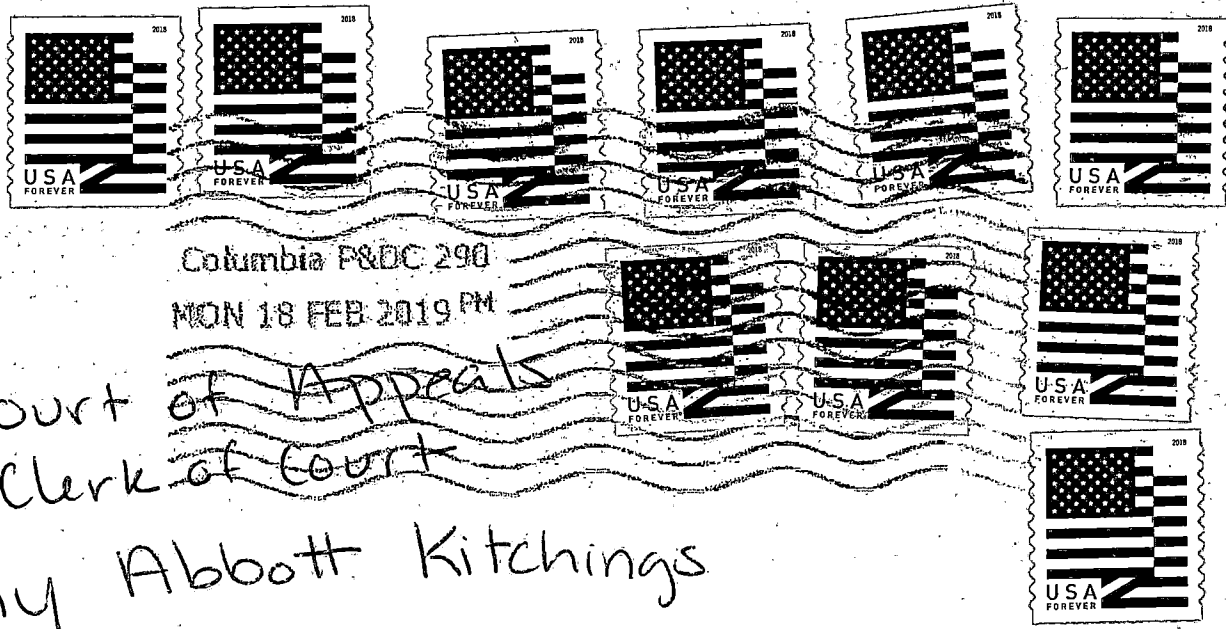 2018
USA
FOREVER
2018
USA
FOREVER
2018
USA
FOREVER
2018
USA
FOREVER
2018
USA
FOREVER
2018
USA
FOREVER
Columbia P&DC 290
MON 18 FEB 2019 PM
2018
USA
FOREVER
2018
USA
FOREVER
2018
USA
FOREVER
ourt of Appeals
Clerk of Court
Abbott Kitchings
2018
USA
FOREVER